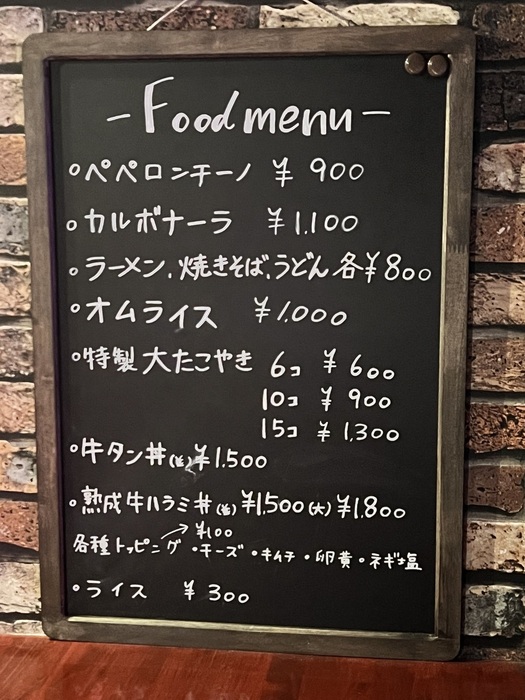 -Food menu-
○ペペロンチーノ ¥900
○カルボナーラ ¥1.100
○ラーメン、焼きそば、うどん 各¥800
○オムライス ¥1.000
○特製大たこやき 6コ ¥600
10コ ¥900
15コ ¥1,300
○牛タン丼(並)¥1.500
○熟成牛ハラミ丼(並)¥1,500(大)¥1.800
¥100
各種トッピング ・チーズ ・キムチ ・卵黄 ・ネギ塩
○ライス ¥300